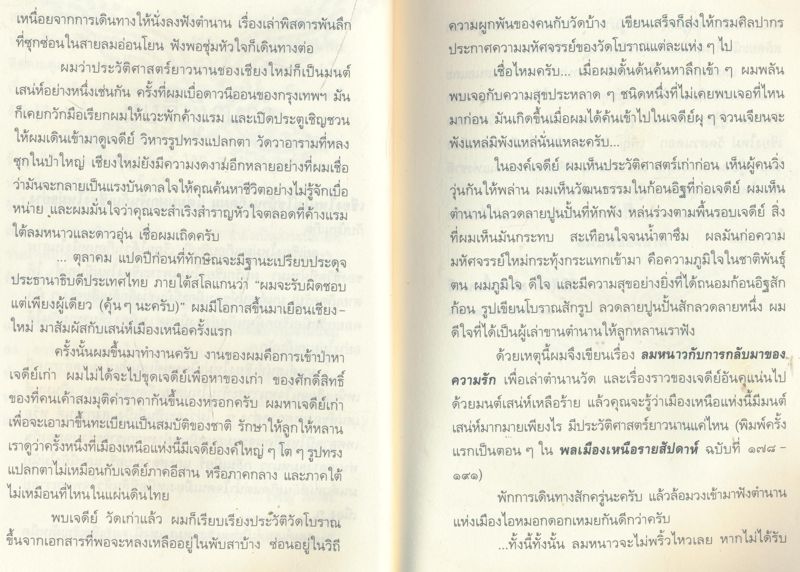 เหนื่อยจากการเดินทางให้นั่งลงฟังตำนาน เรื่องเล่าพิสดารพันลึก
ที่ซุกซ่อนในสายลมอ่อนโยน ฟังพอชุ่มหัวใจก็เดินทางต่อ
ผมว่าประวัติศาสตร์ยาวนานของเชียงใหม่ก็เป็นมนต์
เสน่ห์อย่างหนึ่งเช่นกัน ครั้งที่ผมเบื่อดาวนีออนของกรุงเทพฯ มัน
ก็เคยกวักมือเรียกผมให้แวะพักค้างแรม และเปิดประตูเชิญชวน
ให้ผมเดินเข้ามาดูเจดีย์ วิหารรูปทรงแปลกตา วัดวาอารามที่หลง
ซุกในป่าใหญ่ เชียงใหม่ยังมีความงดงามอีกหลายอย่างที่ผมเชื่อ
ว่ามันจะกลายเป็นแรงบันดาลใจให้คุณค้นหาชีวิตอย่างไม่รู้จักเบื่อ
หน่าย และผมมั่นใจว่าคุณจะสำเริงสำราญหัวใจตลอดที่ค้างแรม
ใต้ลมหนาวและดาวอุ่น เชื่อผมเถิดครับ
... ตุลาคม แปดปีก่อนที่ทักษิณจะมีฐานะเปรียบประดุจ
ประธานาธิบดีประเทศไทย ภายใต้สโลแกนว่า “ผมจะรับผิดชอบ
แต่เพียงผู้เดียว (คุ้นๆ นะครับ)” ผมมีโอกาสขึ้นมาเยือนเชียง-
ใหม่ มาสัมผัสกับเสน่ห์เมืองเหนือครั้งแรก
ครั้งนั้นผมขึ้นมาทำงานครับ งานของผมคือการเข้าป่าหา
เจดีย์เก่า ผมไม่ได้จะไปขุดเจดีย์เพื่อหาของเก่า ของศักดิ์สิทธิ์
ของที่คนเค้าสมมุติค่าราคากันขึ้นเองหรอกครับ ผมหาเจดีย์เก่า
เพื่อจะเอามาขึ้นทะเบียนเป็นสมบัติของชาติ รักษาให้ลูกให้หลาน
เราดูว่าครั้งหนึ่งที่เมืองเหนือแห่งนี้มีเจดีย์องค์ใหญ่ ๆ โต ๆ รูปทรง
แปลกตาไม่เหมือนกับเจดีย์ภาคอีสาน หรือภาคกลาง และภาคใต้
ไม่เหมือนที่ไหนในแผ่นดินไทย
พบเจดีย์ วัดเก่าแล้ว ผมก็เรียบเรียงประวัติวัดโบราณ
ขึ้นจากเอกสารที่พอจะหลงเหลืออยู่ในพับสาบ้าง ซ่อนอยู่ในวิถี
ความผูกพันของคนกับวัดบ้าง เขียนเสร็จก็ส่งให้กรมศิลปากร
ประกาศความมหัศจรรย์ของวัดโบราณแต่ละแห่ง ๆ ไป
เชื่อไหมครับ... เมื่อผมดั้นด้นค้นหาลึกเข้า ๆ ผมพลัน
พบเจอกับความสุขประหลาด ๆ ชนิดหนึ่งที่ไม่เคยพบเจอที่ไหน
มาก่อน มันเกิดขึ้นเมื่อผมได้คืนเข้าไปในเจดีย์ผุ ๆ จวนเจียนจะ
พังแหล่มิพังแหล่นั่นแหละครับ...
ในองค์เจดีย์ ผมเห็นประวัติศาสตร์เก่าก่อน เห็นผู้คนวิ่ง
วุ่นกันให้พล่าน ผมเห็นวัฒนธรรมในก้อนอิฐที่ก่อเจดีย์ ผมเห็น
ตำนานในลวดลายปูนปั้นที่หักพัง หล่นร่วงตามพื้นรอบเจดีย์ สิ่ง
ที่ผมเห็นมันกระทบ สะเทือนใจจนน้ำตาซึม ผลมันก่อความ
มหัศจรรย์ใหม่กระทุ้งกระแทกเข้ามา คือความภูมิใจในชาติพันธุ์
ตน ผมภูมิใจ ดีใจ และมีความสุขอย่างยิ่งที่ได้ถนอมก้อนอิฐสัก
ก้อน รูปเขียนโบราณสักรูป ลวดลายปูนปั้นสักลวดลายหนึ่ง ผม
ดีใจที่ได้เป็นผู้เล่าขานตำนานให้ลูกหลานเราฟัง
ด้วยเหตุนี้ผมจึงเขียนเรื่อง ลมหนาวกับการกลับมาของ
ความรัก เพื่อเล่าตำนานวัด และเรื่องราวของเจดีย์อันคูแน่นไป
ด้วยมนต์เสน่ห์เหลือร้าย แล้วคุณจะรู้ว่าเมืองเหนือแห่งนี้มีมนต์
เสน่ห์มากมายเพียงไร มีประวัติศาสตร์ยาวนานแค่ไหน (พิมพ์ครั้ง
แรกเป็นตอน ๆ ใน พลเมืองเหนือรายสัปดาห์ ฉบับที่ ๑๗๘ -
๑๙๑)
พักการเดินทางสักครู่นะครับ แล้วล้อมวงเข้ามาฟังตำนาน
แห่งเมืองไอหมอกดอกเหมยกันดีกว่าครับ
...ทั้งนี้ทั้งนั้น ลมหนาวจะไม่พริ้วไหวเลย หากไม่ได้รับ